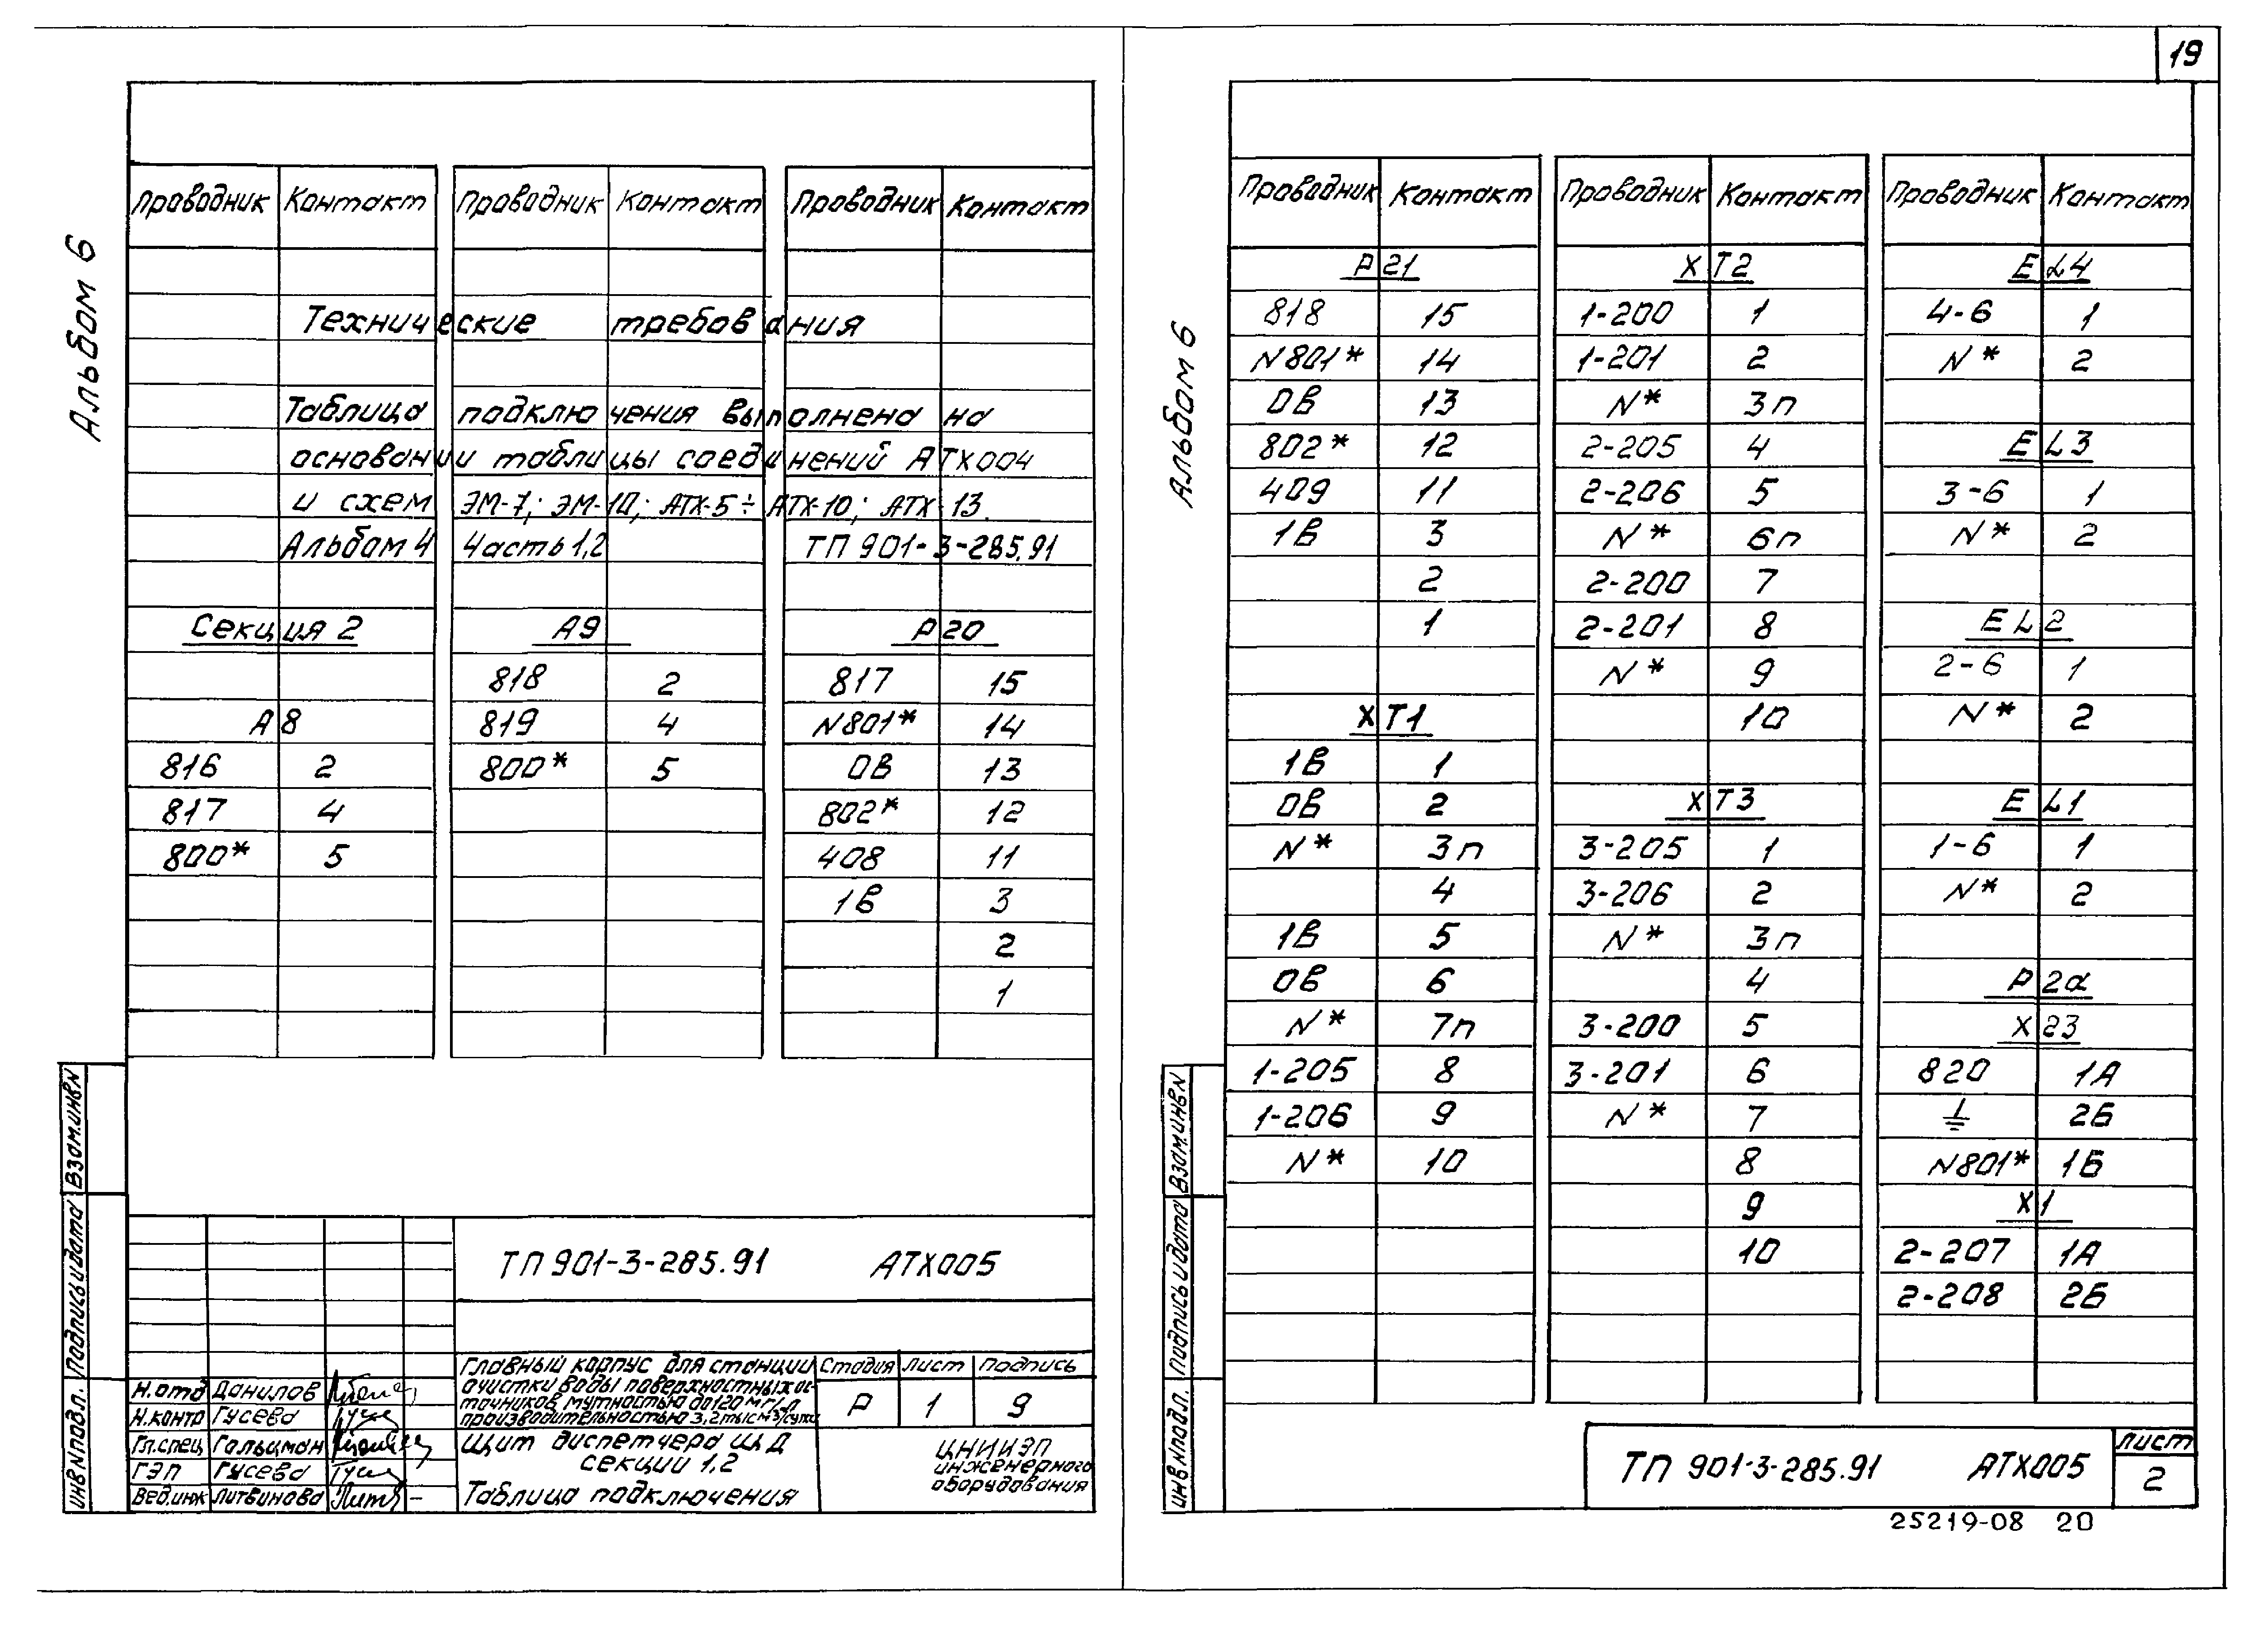 19
Альбом 6
Проводник Контакт Проводник Контакт Проводник Контакт
Технические требования
Таблица подключения выполнена на
основании таблицы соединений АТХ004
и схем ЭМ-7; ЭМ-10; АТХ-5÷АТХ-10; АТХ-13.
Альбом 4 Часть 1,2 ТП 901-3-285.91
Секция 2 А9 Р20
818 2 817 15
А8 819 4 N801* 14
816 2 800* 5 0В 13
817 4 802* 12
800* 5 408 11
1В 3
2
1
ТП 901-3-285.91 АТХ005
Главный корпус для станции
очистки воды поверхностных ис-
точников мутностью до 120 мг/л
производительностью 3,2 тыс м3/сутки
Стадия Лист Подпись
Р 1 9
Щит диспетчера ЩД
секции 1,2
Таблица подключения
ЦНИИЭП
инженерного
оборудования
Н.отд Данилов
Н.контр Гусева
Гл.спец Гальцман
ГЭП Гусева
Вед.инж Литвинова
Взам.инвN
Подпись и дата
инвNподл.
Альбом 6
Проводник Контакт Проводник Контакт Проводник Контакт
Р21 ХТ2 ЕL4
818 15 1-200 1 4-6 1
N801* 14 1-201 2 N* 2
0В 13 N* 3п
802* 12 2-205 4 ЕL3
409 11 2-206 5 3-6 1
1В 3 N* 6п N* 2
2 2-200 7
1 2-201 8 ЕL2
N* 9 2-6 1
ХТ1 10 N* 2
1В 1
0В 2 ХТ3 ЕL1
N* 3п 3-205 1 1-6 1
4 3-206 2 N* 2
1В 5 N* 3п
0В 6 4 Р2а
N* 7п 3-200 5 Х23
1-205 8 3-201 6 820 1А
1-206 9 N* 7 ⏚ 2Б
N* 10 8 N801* 1Б
9 Х1
10 2-207 1А
2-208 2Б
Взам.инвN
Подпись и дата
инвNподл.
ТП 901-3-285.91 АТХ005
Лист
2
25219-08 20